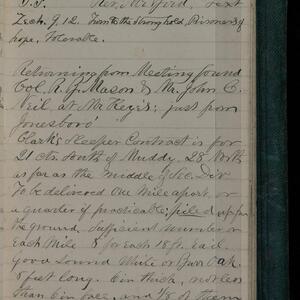 Rev. Metford, Text
Zech. 9.12. Turn to the Stronghold, Prisoners of
hope. Tolerable.
Returning from Meeting found
Col. R. G. Mason & Mr. John C.
Neil at McKeyes; just from
Jonesboro'
Clark's Sleeper Contract is for
21 cts. South of Muddy. 25 North
as far as the middle of Sec. Div
To be delivered One Mile apart, or
a quarter if practicable; piled up from
the ground. Sufficient number on
Each Mile 8 for each 18 ft. rail.
good Sound White or Burr Oak.
8 feet long. 6 in thick, not less
than 6 in face, and 1/8 of them